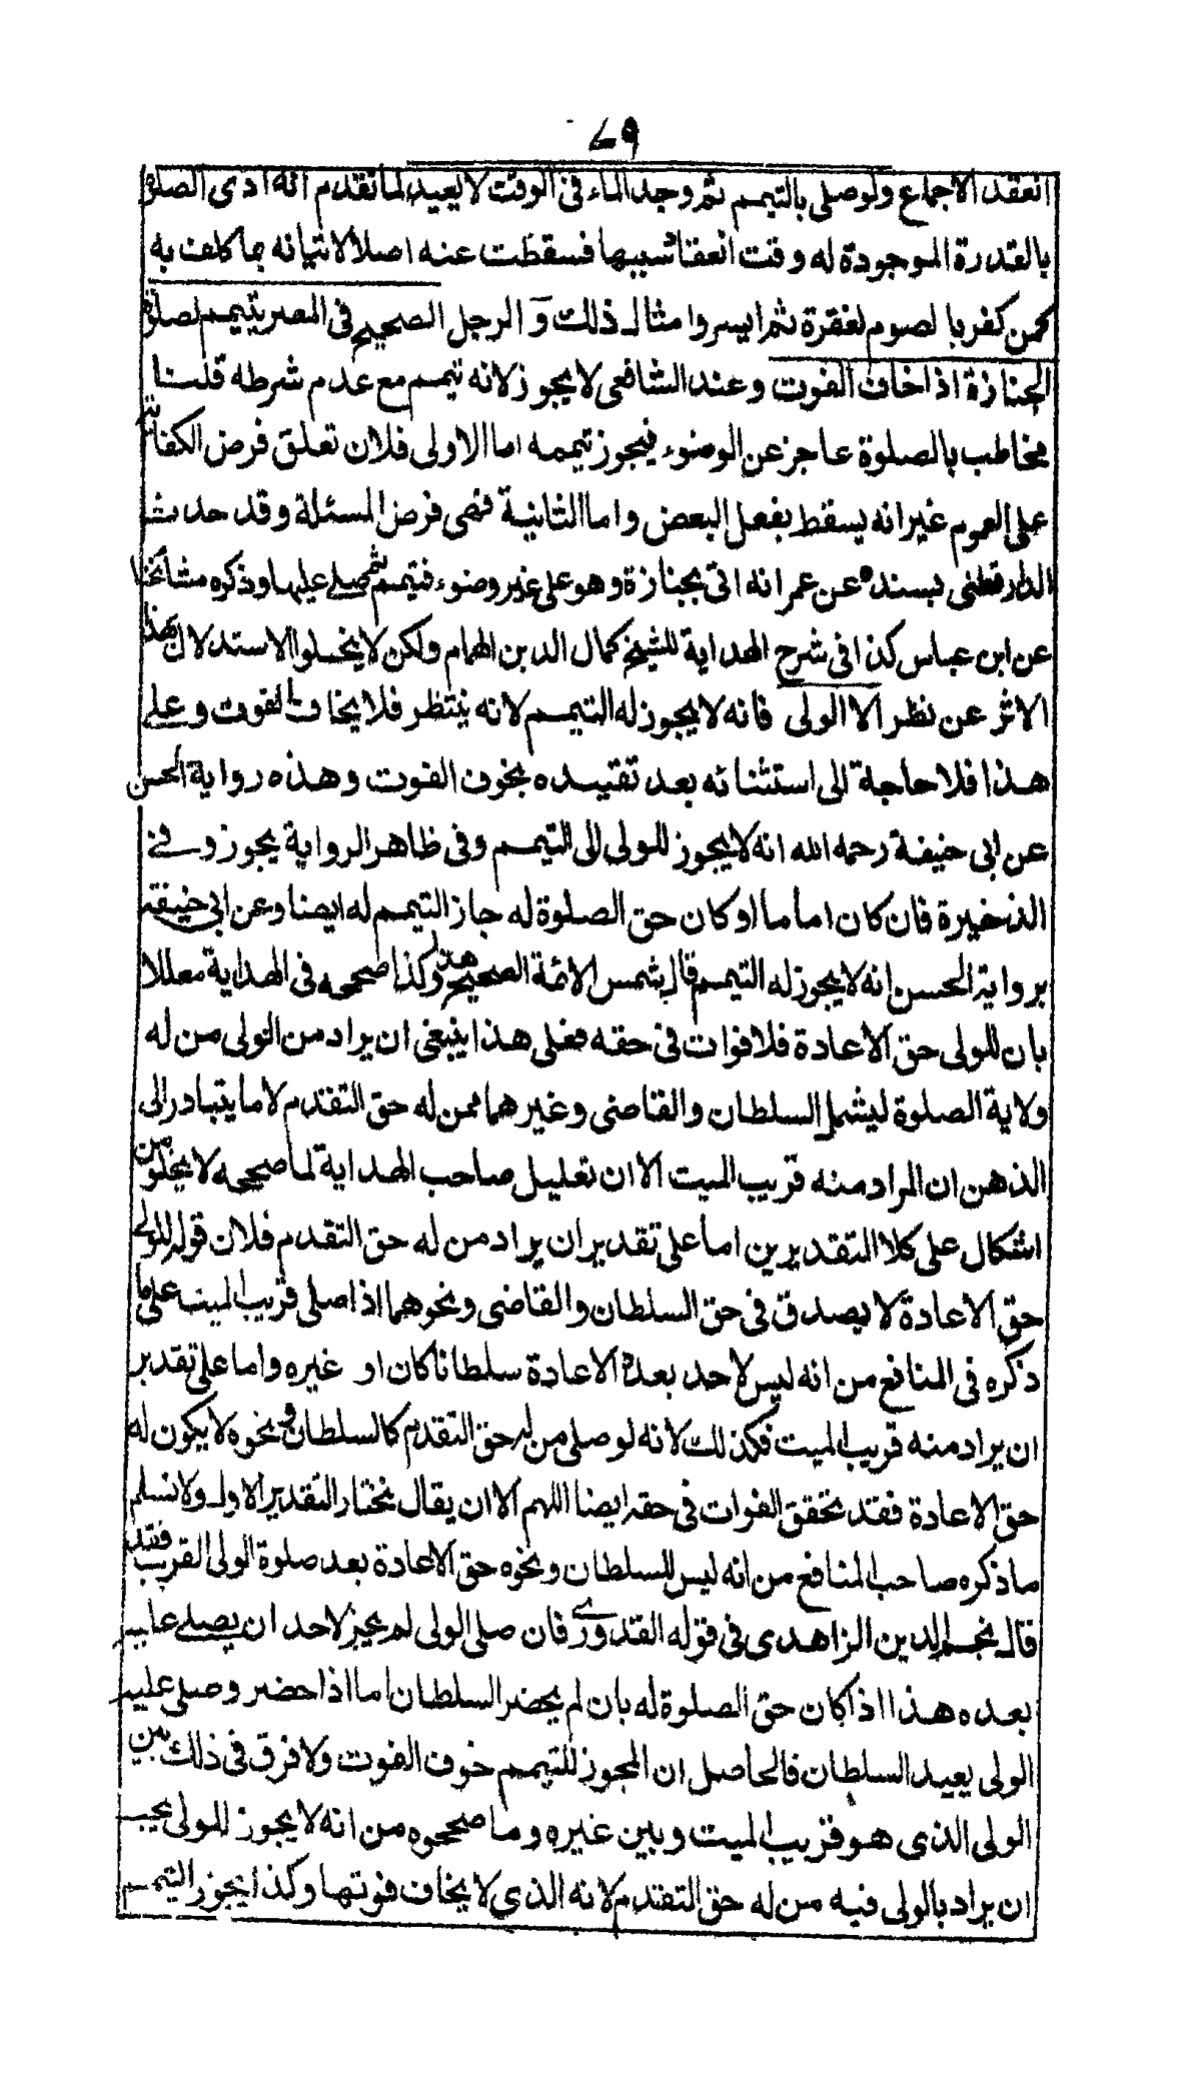 ٧٩
انعقد الاجماع ولو صلى بالتيمم ثم وجد الماء فى الوقت لا يعيد لما تقدم انه ادى الصلوة
بالقدرة الموجودة له وقت انعقاد سببها فسقطت عنه اصلا لاتيانه بما كلف به
كمن كفر بالصوم لفقره ثم ايسر وامثال ذلك و الرجل الصحيح فى المصر يتيمم لصلوة
الجنازة اذا خاف الفوت وعند الشافعى لا يجوز لانه تيمم مع عدم شرطه قلنا
مخاطب بالصلوة عاجز عن الوضوء فيجوز تيممه اما الاولى فلان تعلق فرض الكفاية
على العموم غير انه يسقط بفعل البعض واما الثانية فهى فرض المسئلة وقد حدث
الدارقطنى بسنده عن عمر انه اتى بجنازة وهو على غير وضوء فتيمم ثم صلى عليها وذكره مشائخنا
عن ابن عباس كذا فى شرح الهداية للشيخ كمال الدين الهمام ولكن لا يخلو الاستدلال بهذا
الاثر عن نظر الا الولى فانه لا يجوز له التيمم لانه ينتظر فلا يخاف الفوت وعلى
هذا فلا حاجة الى استثنائه بعد تقييده بخوف الفوت وهذه رواية الحسن
عن ابى حنيفة رحمه الله انه لا يجوز للولى الى التيمم وفى ظاهر الرواية يجوز وفى
الذخيرة فان كان اماما او كان حق الصلوة له جاز التيمم له ايضا وعن ابى حنيفة
برواية الحسن انه لا يجوز له التيمم قال شمس الائمة الصحيح هذا وكذا صححه فى الهداية معللا
بان للولى حق الاعادة فلا فوات فى حقه فعلى هذا ينبغى ان يراد من الولى من له
ولاية الصلوة ليشمل السلطان والقاضى وغيرهما ممن له حق التقدم لا ما يتبادر الى
الذهن ان المراد منه قريب الميت الا ان تعليل صاحب الهداية لما صححه لا يخلو من
اشكال على كلا التقديرين اما على تقدير ان يراد من له حق التقدم فلان قوله للولى
حق الاعادة لا يصدق فى حق السلطان والقاضى ونحوهما اذا صلى قريب الميت على ما
ذكره فى المنافع من انه ليس لاحد بعده الاعادة سلطانا كان او غيره واما على تقدير
ان يراد منه قريب الميت فكذلك لانه لو صلى من له حق التقدم كالسلطان ونحوه لا يكون له
حق الاعادة فقد تحقق الفوات فى حقه ايضا اللهم الا ان يقال نختار التقدير الاول ولا نسلم
ما ذكره صاحب المنافع من انه ليس للسلطان ونحوه حق الاعادة بعد صلوة الولى القريب فقد
قال نجم الدين الزاهدى فى قوله القدورى فان صلى الولى لم يجز لاحد ان يصلى عليه
بعده هذا اذا كان حق الصلوة له بان لم يحضر السلطان اما اذا حضر وصلى عليه
الولى يعيد السلطان فالحاصل ان المجوز للتيمم خوف الفوت ولا فرق فى ذلك بين
الولى الذى هو قريب الميت وبين غيره وما صححوه من انه لا يجوز للولى يجب
ان يراد بالولى فيه من له حق التقدم لانه الذى لا يخاف فوتها وكذا يجوز التيمم